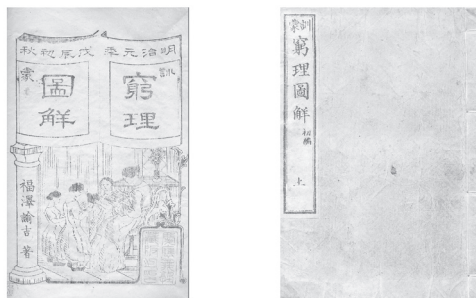 明治元季戊辰初秋
訓蒙
窮理
圖解
福澤諭吉 著
訓蒙 窮理圖解 初編 上